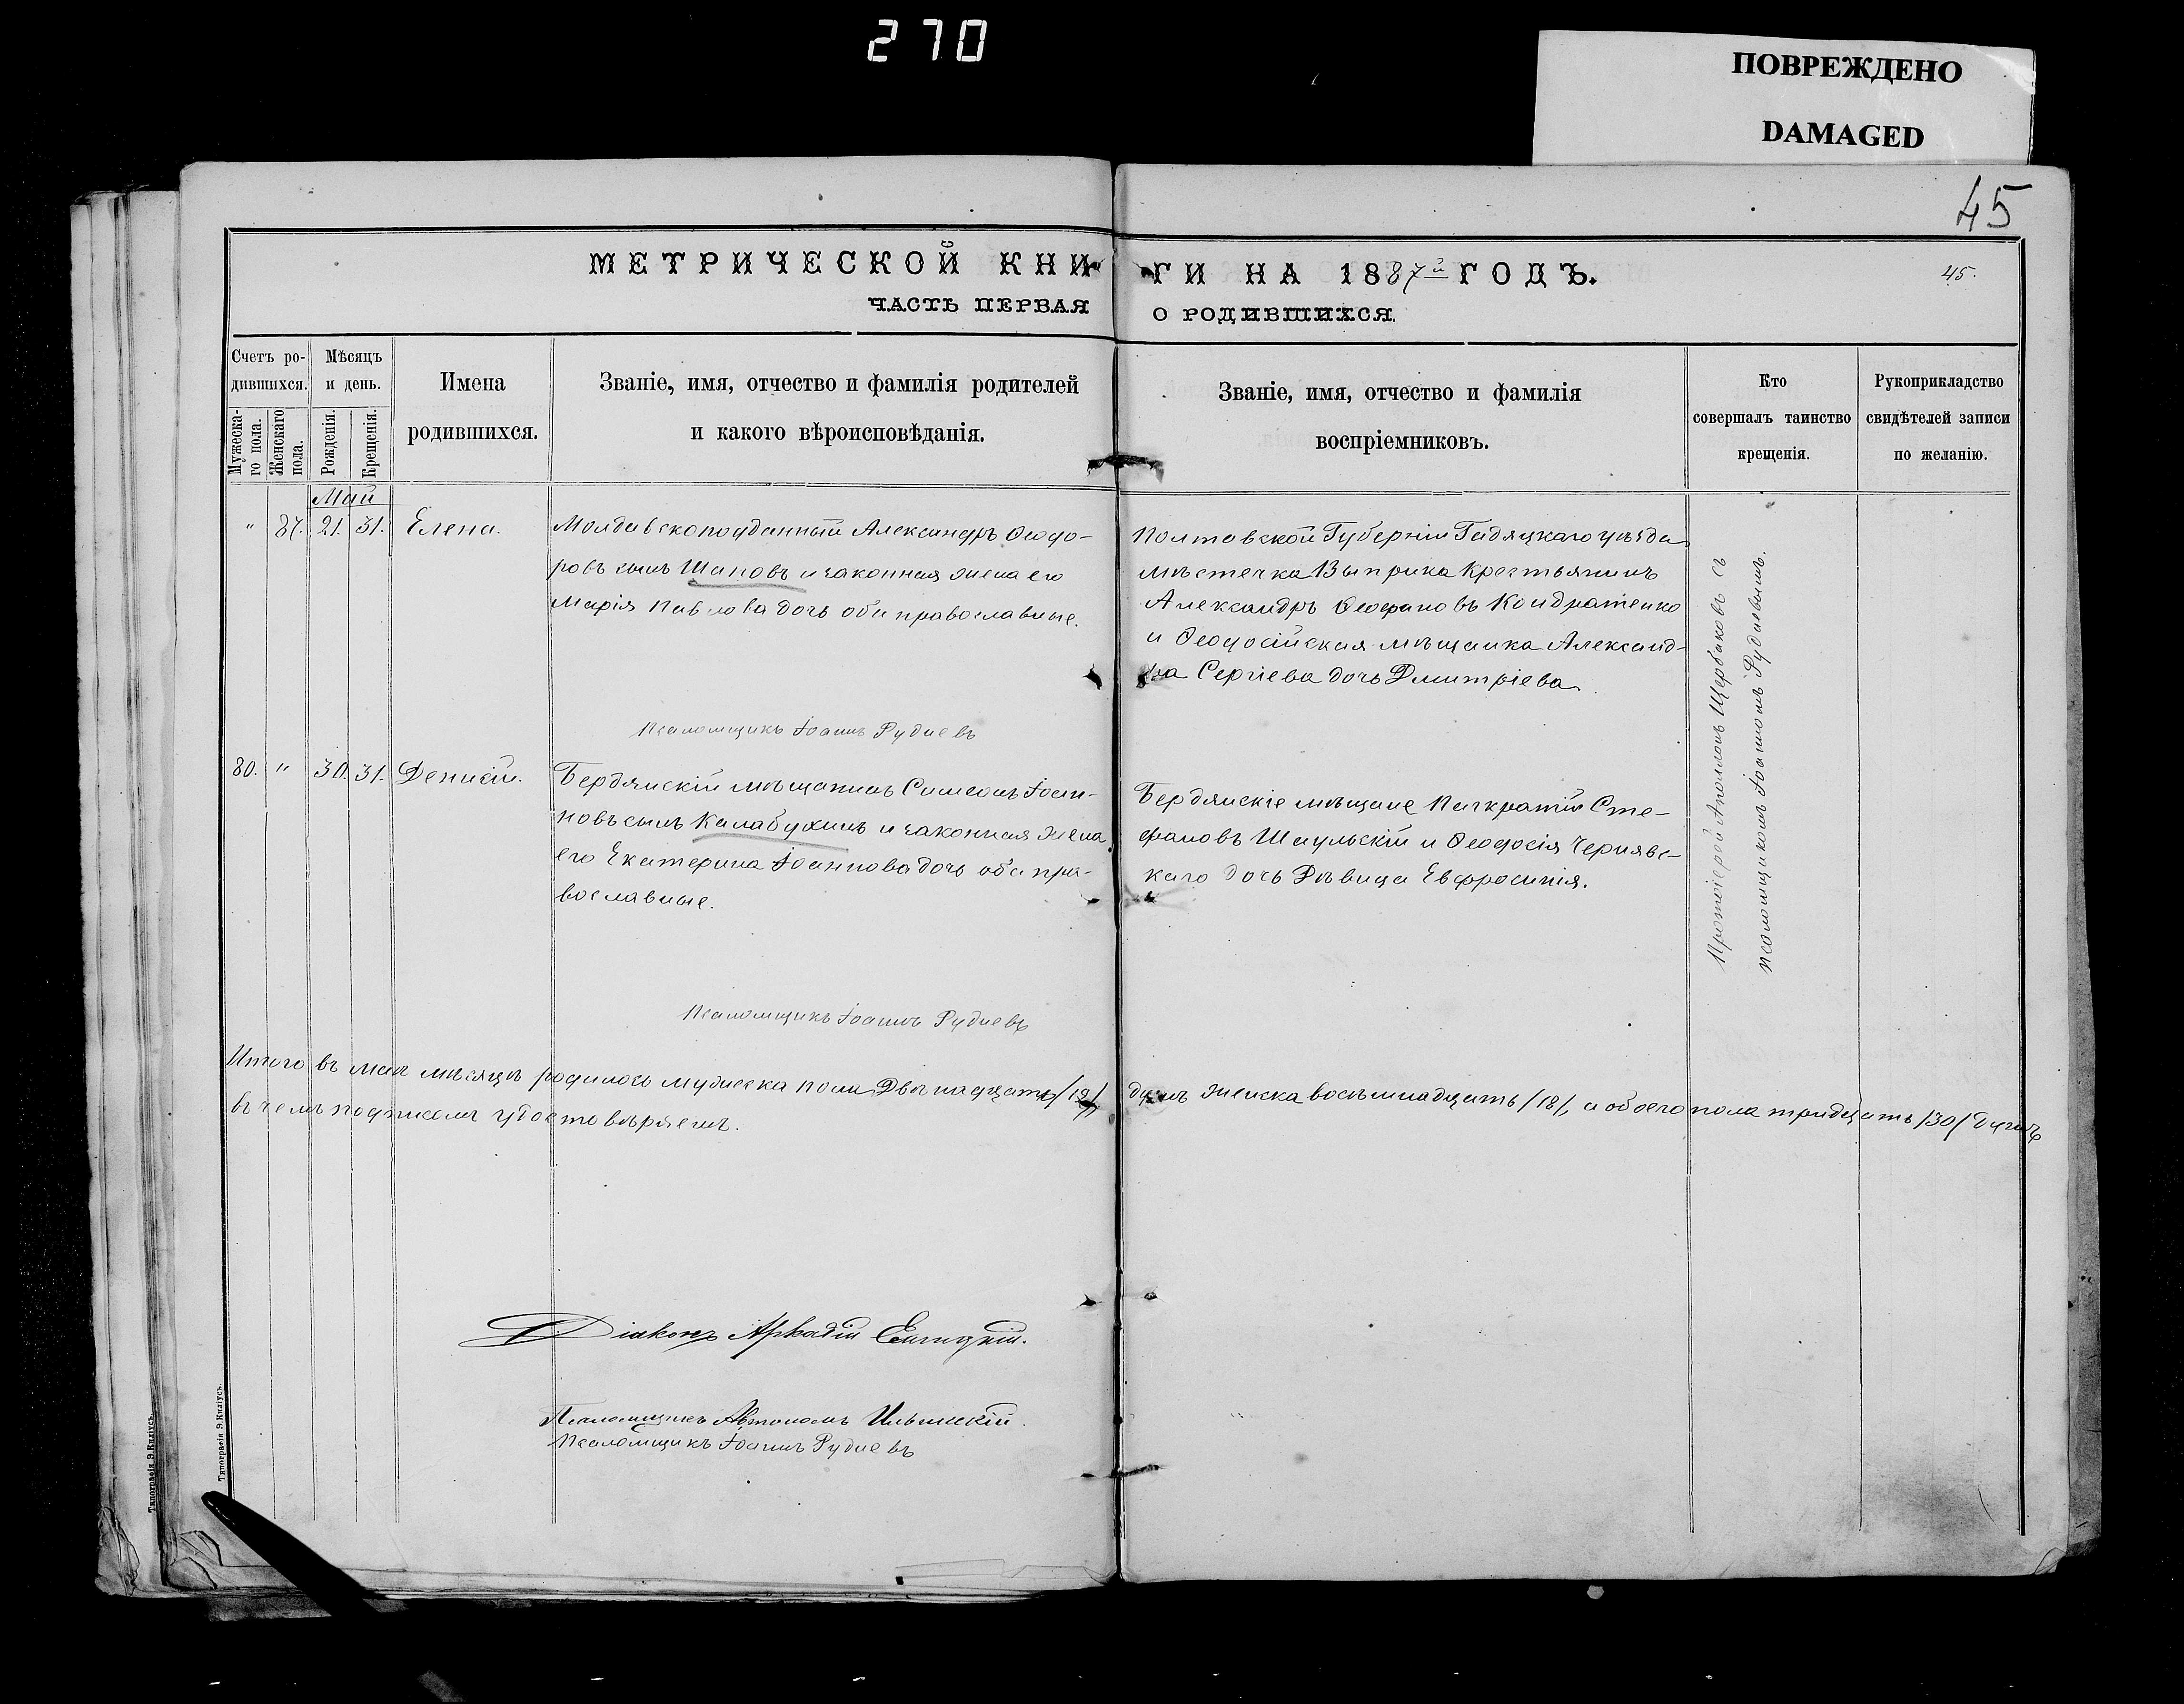 270
ПОВРЕЖДЕНО
DAMAGED
45
МЕТРИЧЕСКОЙ КНИ-
ГИ НА 1887й ГОДЪ.
45.
ЧАСТЬ ПЕРВАЯ
О РОДИВШИХСЯ.
Счетъ ро-
дившихся.
Мужеска-
го пола.
Женскаго
пола.
Мѣсяцъ
и день.
Рожденія.
Крещенія.
Имена
родившихся.
Званіе, имя, отчество и фамилія родителей
и какого вѣроисповѣданія.
Званіе, имя, отчество и фамилія
воспріемниковъ.
Кто
совершалъ таинство
крещенія.
Рукоприкладство
свидѣтелей записи
по желанію.
Май
" 87. 21. 31. Елена.
Молдавскоподданный Александръ Ѳеодо-
ровъ сынъ Шаповъ и законная жена его
Марія Павлова дочь оба православные.
Полтавской Губерніи Гадяцкаго уѣзда
мѣстечка Выприка Крестьянинъ
Александръ Ѳеофановъ Кондратенко
и Ѳеодосійская мѣщанка Александ-
ра Сергіева дочь Дмитріева.
Псаломщикъ Іоаннъ Рудневъ
80. " 30. 31. Денисій.
Бердянскій мѣщанинъ Симеонъ Іоан-
новъ сынъ Калабухинъ и законная жена
его Екатерина Іоаннова дочь оба пра-
вославные.
Бердянскіе мѣщане Панкратій Сте-
фановъ Шаульскій и Ѳеодосія Чернявс-
каго дочь Дѣвица Евфросинія.
Псаломщикъ Іоаннъ Рудневъ
Протоіерей Аполлонъ Щербаковъ съ
псаломщикомъ Іоанномъ Рудневымъ.
Итого въ маѣ мѣсяцѣ родилось мужеска пола Двѣнадцать /12/ душъ женска восемнадцать /18/, а обоего пола тридцать /30/ душъ
въ чемъ подписомъ удостовѣряемъ.
Діаконъ Аркадій
Псаломщикъ Автономъ Ильинскій.
Псаломщикъ Іоаннъ Рудневъ
Типографія Э.Киліусъ.
Типографія Э.Киліусъ.